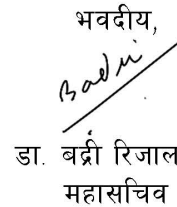 भवदीय,
Badri
डा. बद्री रिजाल
महासचिव